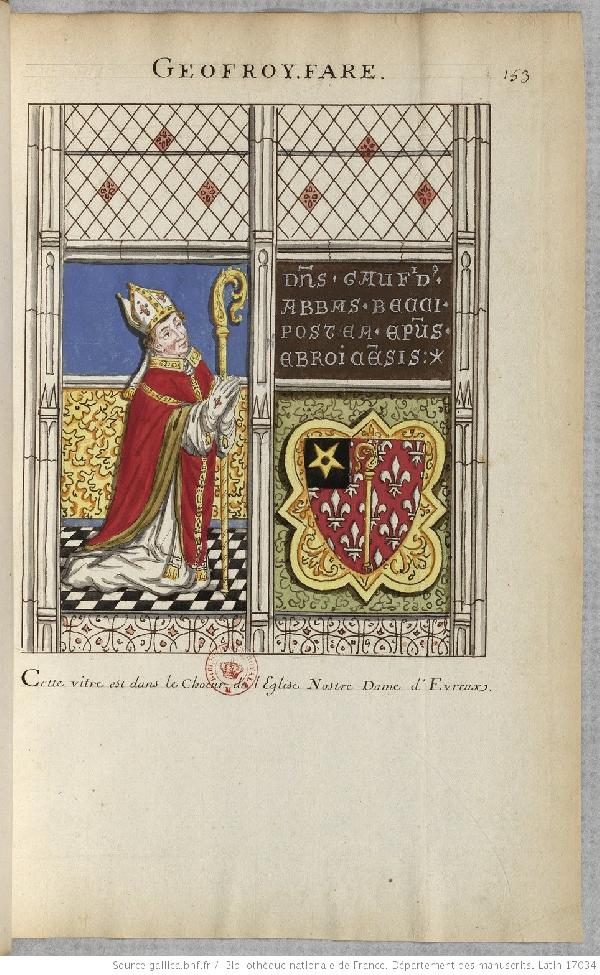 GEOFROY.FARE.
153
DN̄S · GAUF'D'·
ABBAS · BECCI ·
POSTEA · EP̄US ·
EBROICĒSIS:
Cette vitre est dans le Choeur de l'Eglise Nostre Dame d'Evreux.
Source gallica.bnf.fr / Bibliothèque nationale de France. Département des manuscrits. Latin 17034